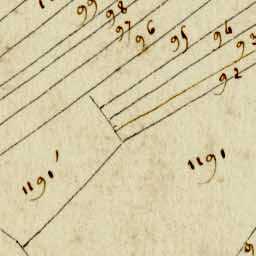 99
98
97
96
95
94
93
92
1191
1191'